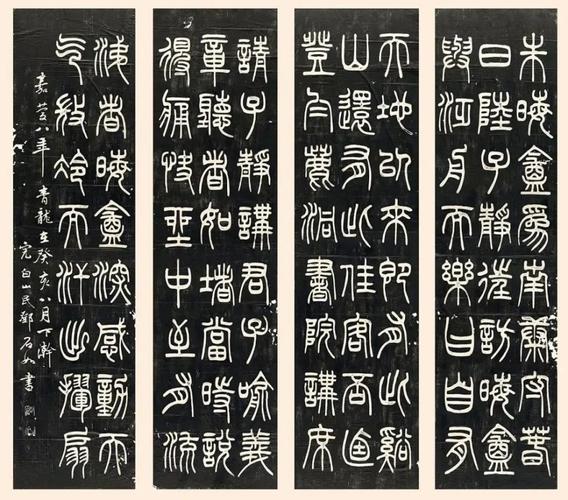 朱晦盦爲南康守春
日陸子靜從訪晦盦
與泛舟而樂曰自有
天地以來即有此谿
山還有此佳客否因
登白鹿洞書院講席
請子靜講君子喻義
章聽者如堵當時說
得痛快坐中至有流
涕者晦盦深感動天
气微冷而汗出揮扇
嘉慶八年青龍在癸亥八月下澣
完白山民鄧石如書